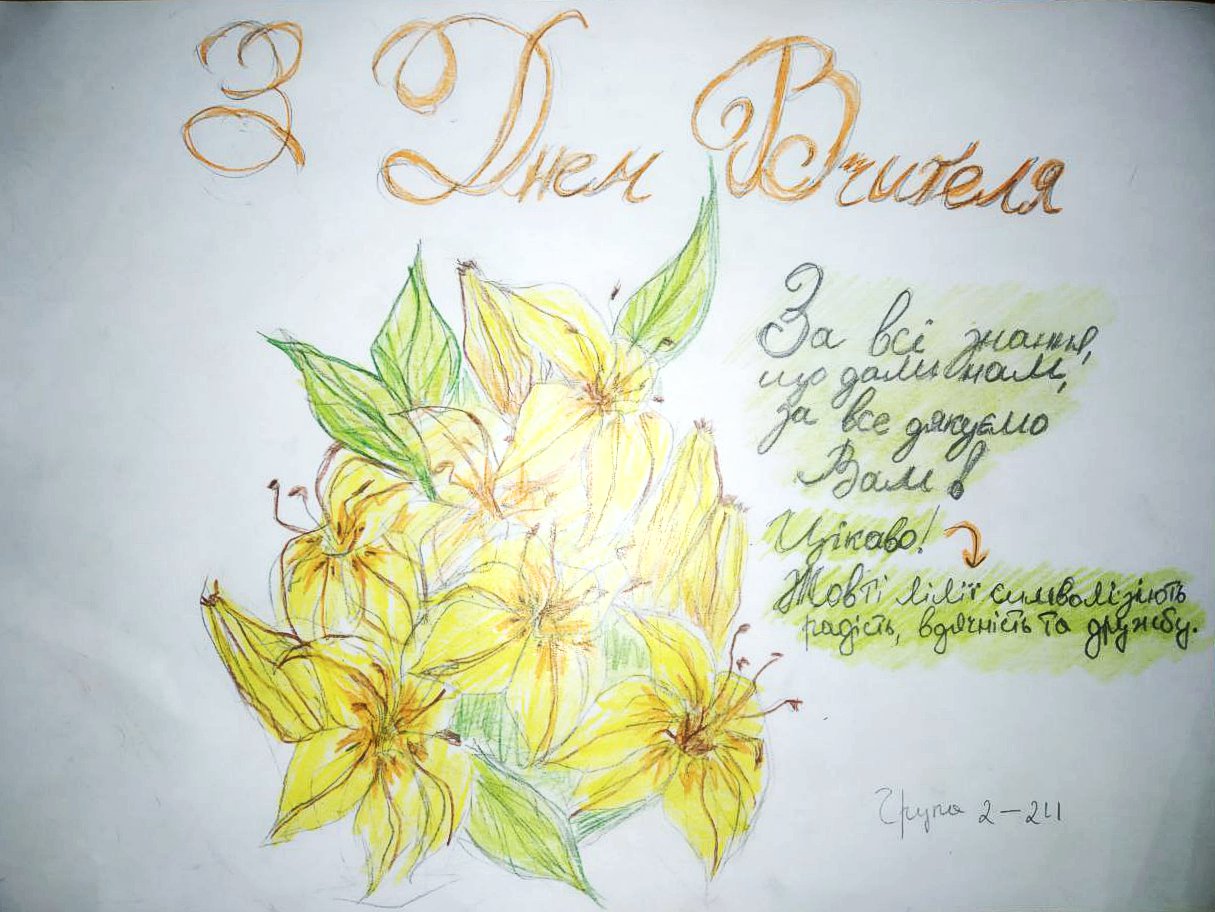 З Днем Вчителя
За всі знання,
що дали нам,
за все дякуємо
Вам!
Цікаво!
Жовті лілії символізують
радість, вдячність та дружбу.
Група 2-24